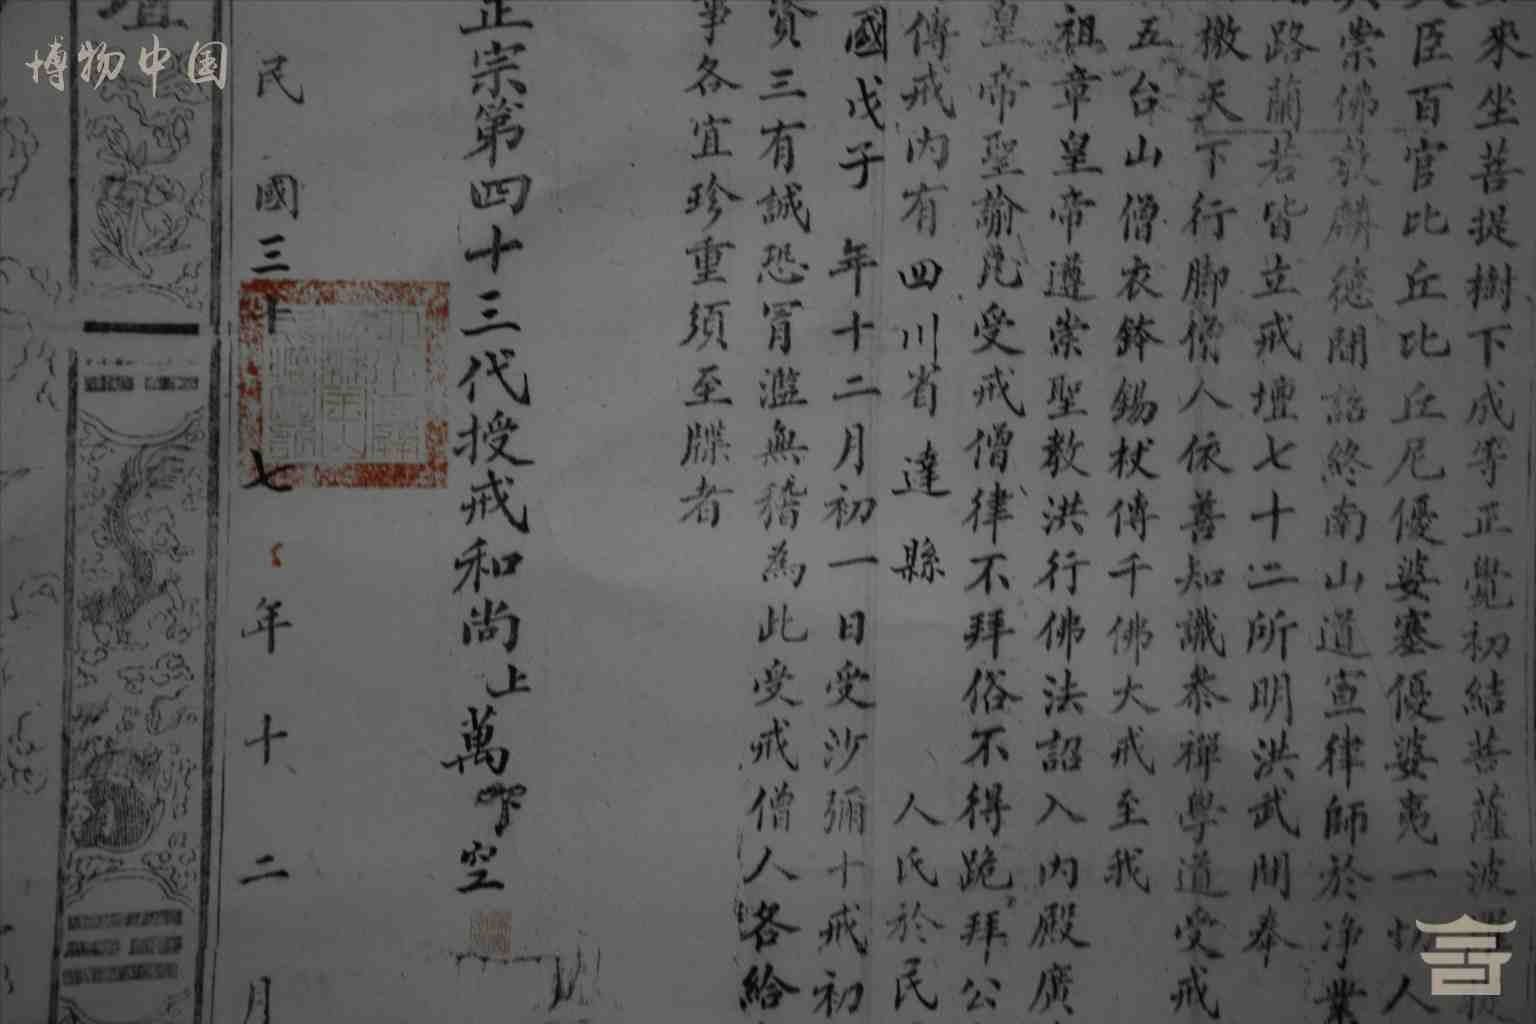 博物中国
來坐菩提樹下成等正覺初結菩薩波
臣百官比丘比丘尼優婆塞優婆夷一切人
崇佛教麟德間詔終南山道宣律師於淨業
路蘭若皆立戒壇七十二所明洪武間奉
檄天下行脚僧人依善知識恭禪學道受戒
五台山僧衣鉢錫杖傳千佛大戒至我
祖章皇帝遵崇聖教洪行佛法詔入内殿廣
皇帝聖諭凡受戒僧律不拜俗不得跪拜公
傳戒内有四川省達縣 人氏於民
國戊子 年十二月初一日受沙彌十戒初
資三有誠恐冐濫無稽為此受戒僧人各給
事各宜珍重須至牒者
正宗第四十三代授戒和尚上萬下空
民國三十七年十二月